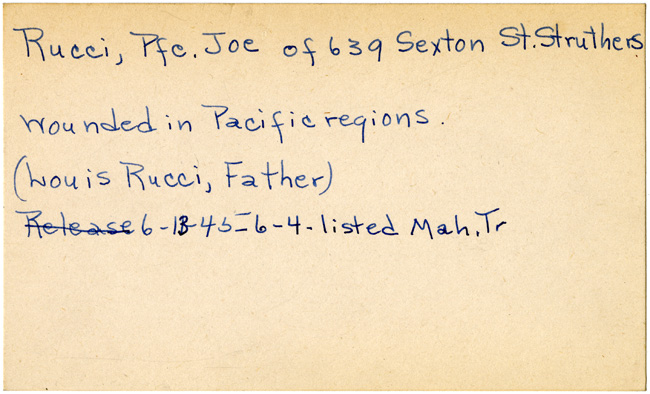 Rucci, Pfc. Joe of 639 Sexton St. Struthers
wounded in Pacific regions.
(Louis Rucci, Father)
Release 6-13-45-6-4-listed Mah. Tr